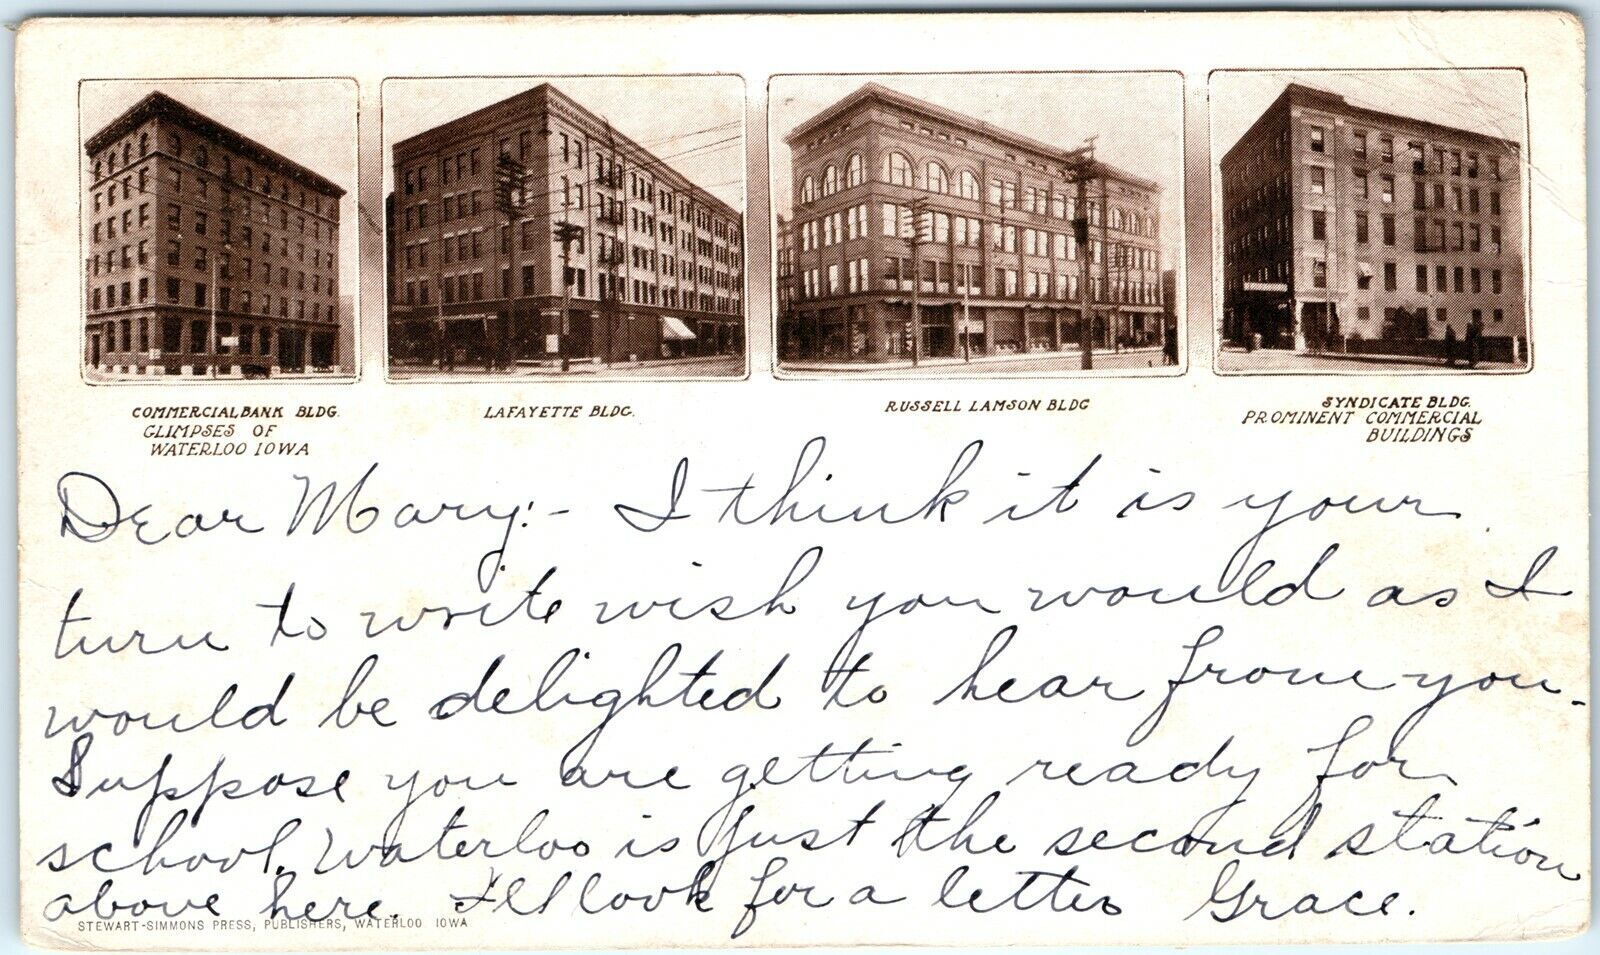 COMMERCIAL BANK BLDG.
GLIMPSES OF
WATERLOO IOWA
LAFAYETTE BLDG.
RUSSELL LAMSON BLDG
SYNDICATE BLDG.
PROMINENT COMMERCIAL
BUILDINGS
Dear Mary:- I think it is your
turn to write wish you would as I
would be delighted to hear from you.
Suppose you are getting ready for
school. Waterloo is just the second station
above here. I'll look for a letter Grace.
STEWART-SIMMONS PRESS, PUBLISHERS, WATERLOO IOWA